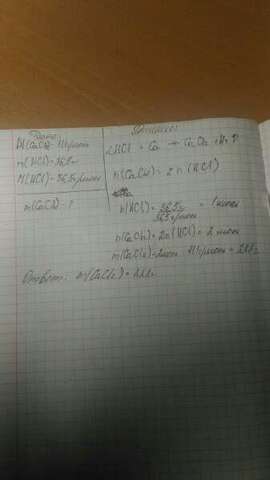 Дано:
M(CaCl2)=111г/моль
m(HCl)=36,5г
M(HCl)=36,5г/моль
m(CaCl2)-?
Решение:
2HCl + Ca → CaCl2 + H2↑
n(CaCl2)=2n(HCl)
n(HCl)=36,5г/36,5г/моль=1моль
n(CaCl2)=2n(HCl)=2моль
m(CaCl2)=2моль·111г/моль=222г
Ответ: m(CaCl2)=222г